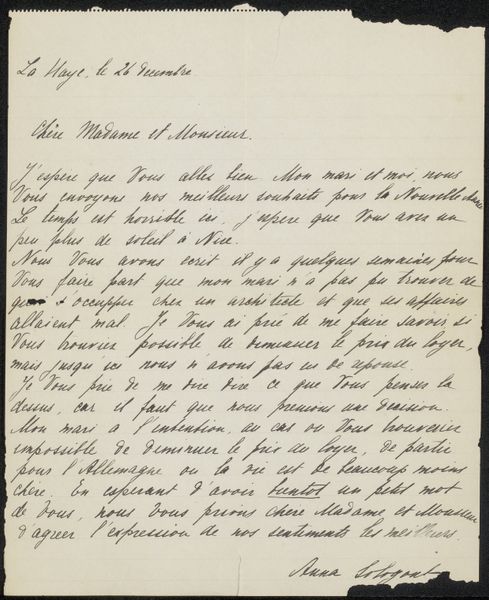 La Haye, le 26 decembre
Chère Madame et Monsieur.
J'espere que Vous alles bien. Mon mari et moi, nous
Vous envoyons nos meilleurs souhaits pour la Nouvelle Annee
Le temps est horrible ici, j'espere que Vous aves un
peu plus de soleil à Nice.
Nous Vous avons ecrit il y a quelques semaines pour
Vous faire part que mon mari n'a pas pu trouver de
s'occupper chez un architecte et que ses affaires
allaient mal. Je Vous ai prié de me faire savoir si
Vous trouvies possible de diminuer le prix du loyer,
mais jusqu'ici nous n'avons pas eu de reponse.
Je Vous prie de me dire ce que Vous penses la
dessus, car il faut que nous prenions une decision.
Mon mari a l'intention, au cas ou Vous trouveries
impossible de diminuer le prix du loyer, de partir
pour l'Allemagne ou la vie est de beaucoup moins
chère. En esperant d'avoir bientot un petit mot
de Vous, nous Vous prions chère Madame et Monsieur
d'agreer l'expression de nos sentiments les meilleurs.
Anna